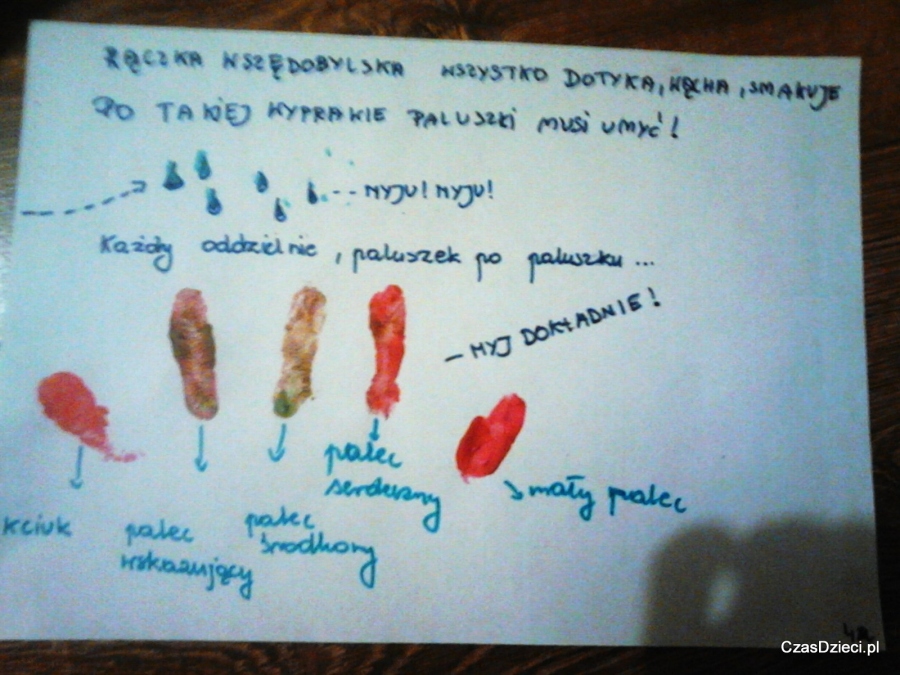 RĄCZKA WSZĘDOBYLSKA WSZYSTKO DOTYKA, WĄCHA, SMAKUJE
PO TAKIEJ WYPRAWIE PALUSZKI MUSI UMYĆ!
-- MYJU! MYJU!
Każdy oddzielnie, paluszek po paluszku ...
— MYJ DOKŁADNIE!
kciuk
palec
wskazujący
palec
środkowy
palec
serdeczny
mały palec
CzasDzieci.pl